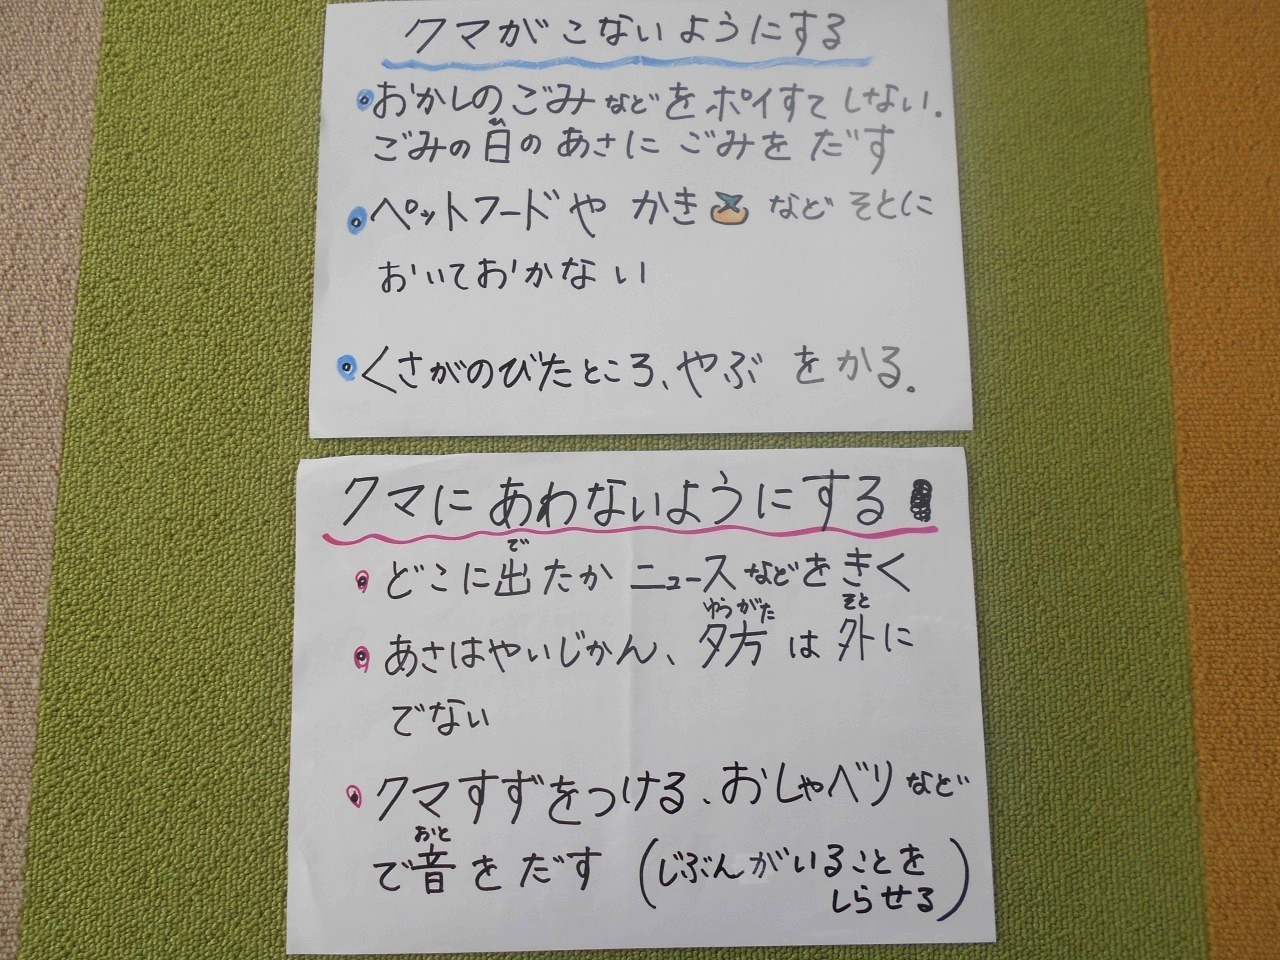 クマがこないようにする
おかしのごみなどをポイすてしない.
ごみの日のあさにごみをだす
ペットフードやかきなどそとに
おいておかない
くさがのびたところ、やぶをかる.
クマにあわないようにする
どこに出たかニュースなどをきく
あさはやいじかん、夕方は外に
でない
クマすずをつける、おしゃべりなど
で音をだす(じぶんがいることを
しらせる)